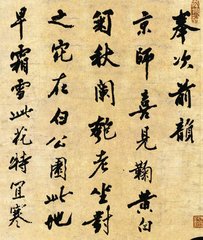 奉次前韻
京師喜見鞠黃白
菊秋闌艷老坐對
之宛在白公園此地
早霜雪此花特宜寒